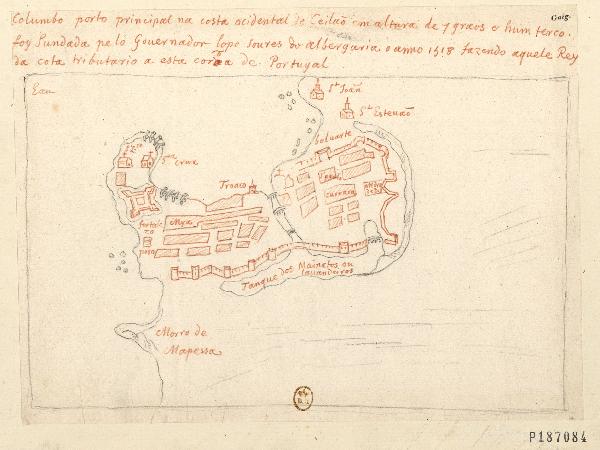 Goig.
Columbo porto principal na costa ocidental de Ceilaõ em altura de 7 graos e hum terco.
foy fundada pelo Governador lopo soures de albergaria o anno 1518 fazendo aquele Rey
da cota tributario a esta coroa de Portugal
Eau
S. Joañ
S. Estevaõ
baluarte
S.ta Cruz
Tronco
fortale
za
Tanque dos Mainatos ou
lavandeiros
Morro de
Mapessa
P187084